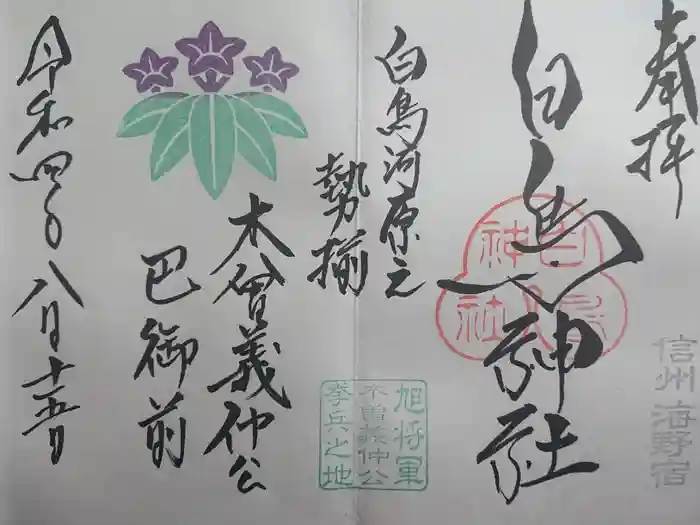 奉拝
信州 海野宿
白鳥神社
白鳥神社
白鳥河原之
勢揃
旭将軍
木曽義仲公
挙兵之地
木曾義仲公
巴御前
令和四年八月十五日